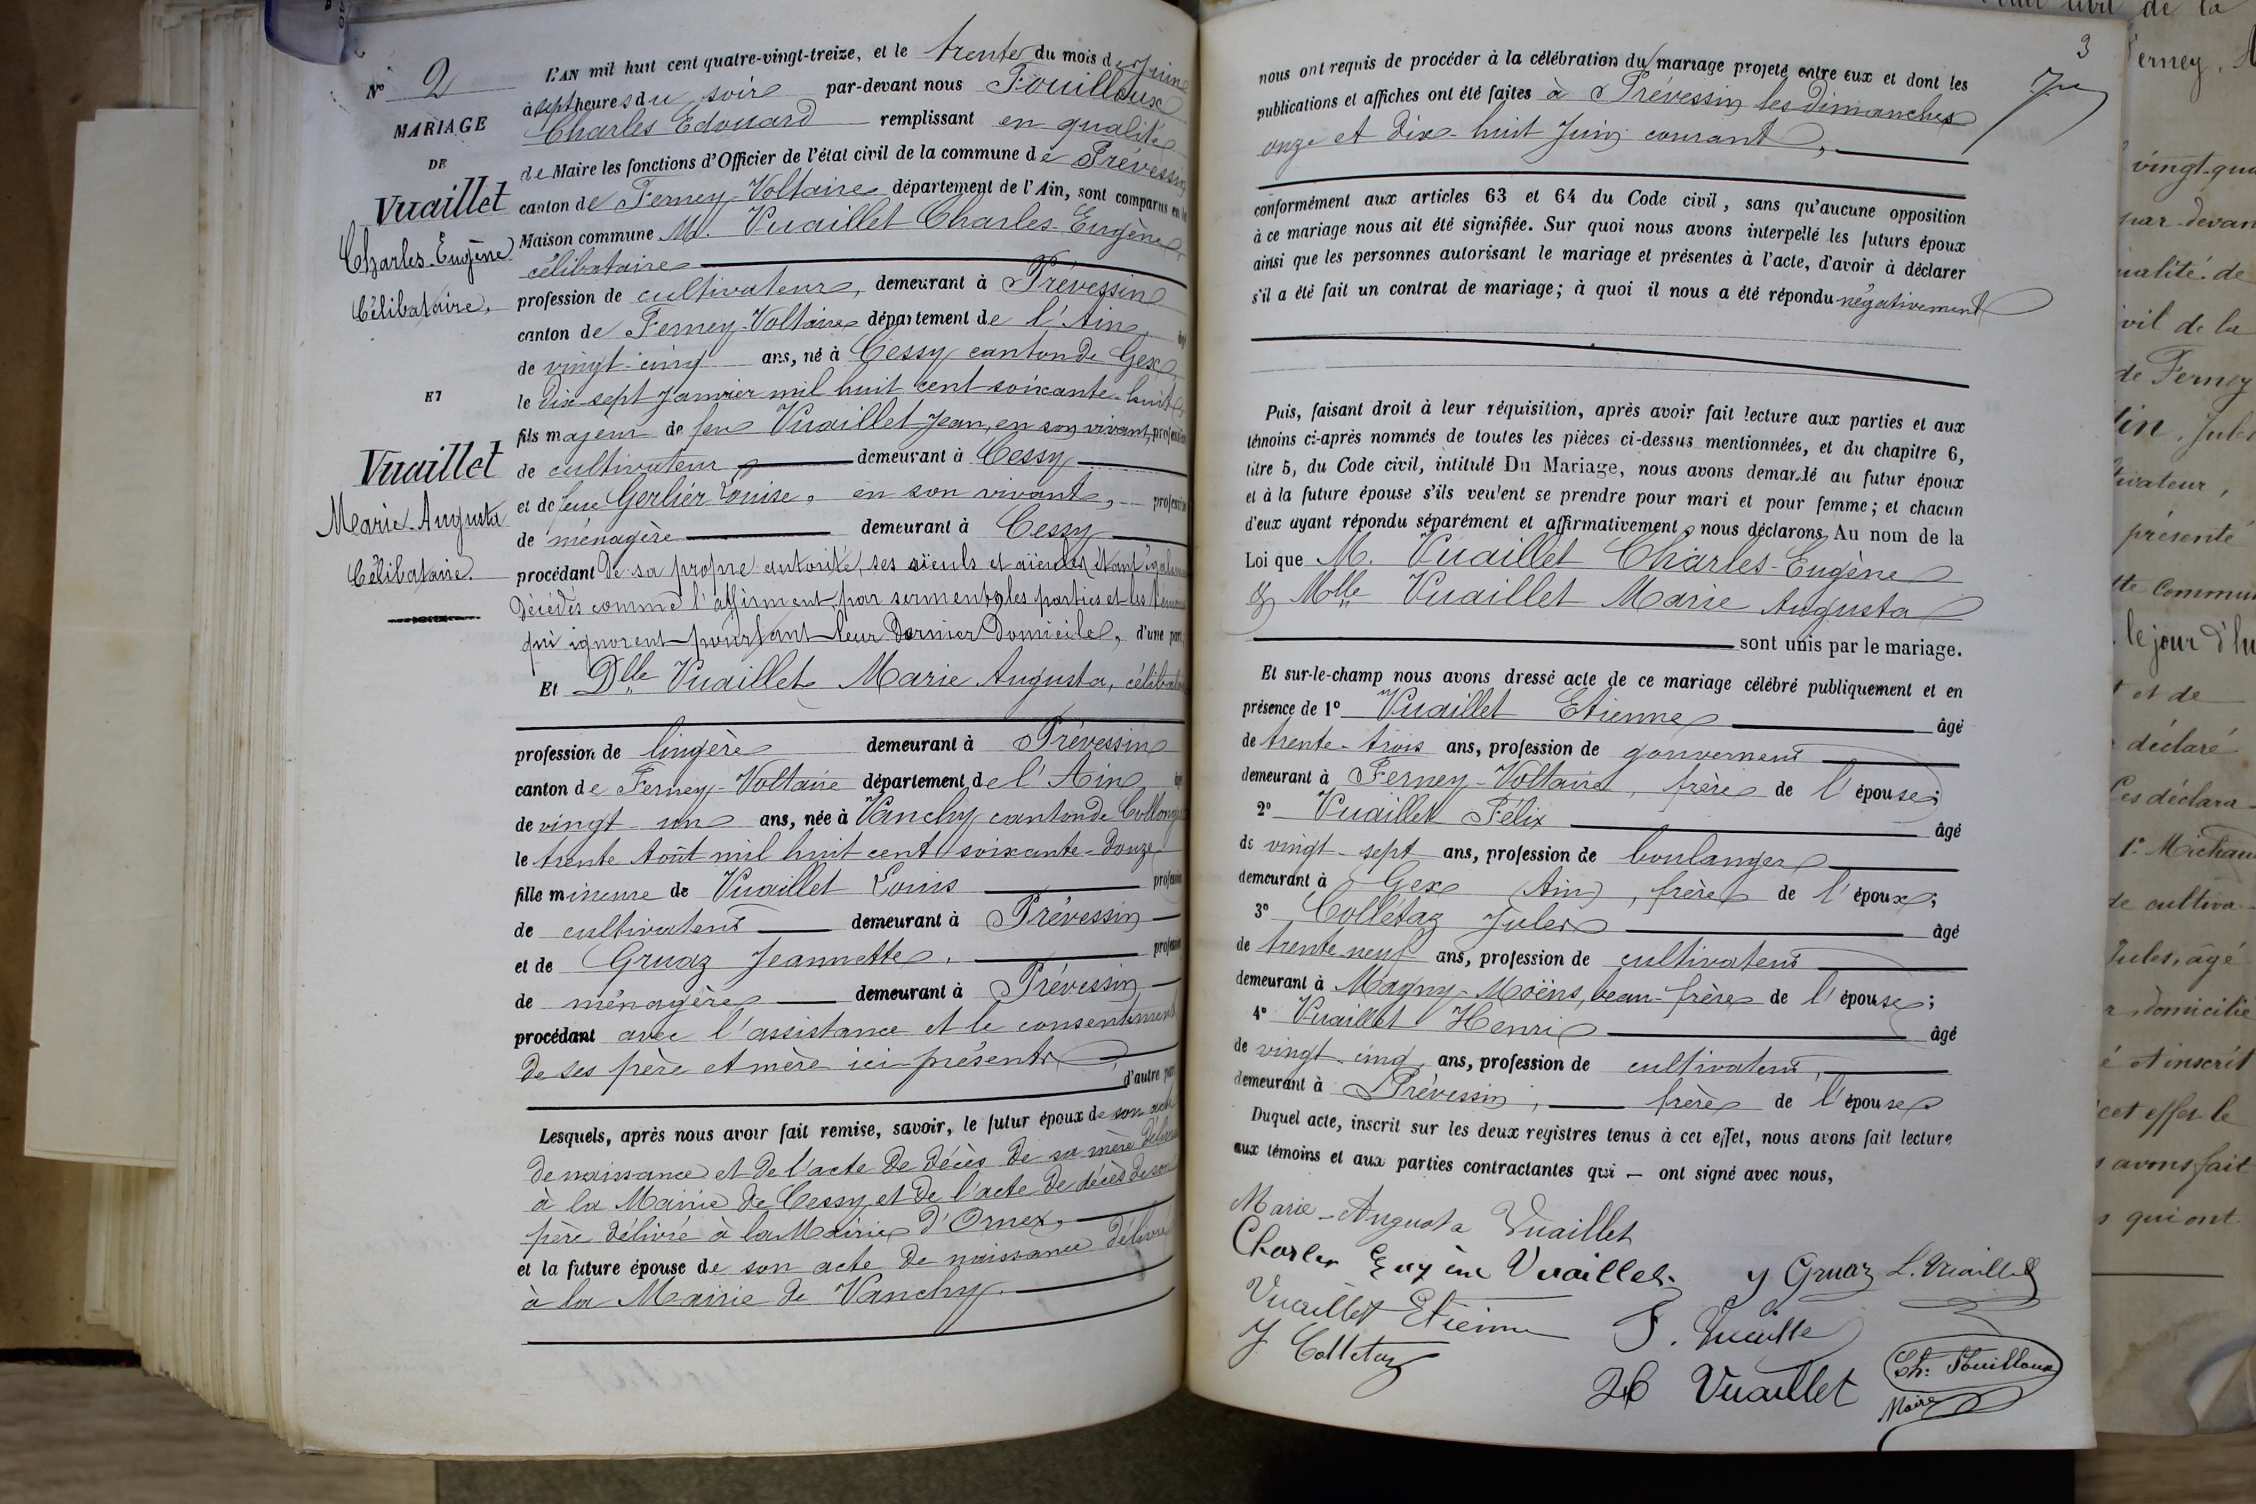 N° 2
MARIAGE
DE
Vuaillet
Charles-Eugène
Célibataire,
ET
Vuaillet
Marie-Augusta
Célibataire.
L'AN mil huit cent quatre-vingt-treize, et le trente du mois de Juin
à sept heures du soir par-devant nous Fouilloux
Charles Edouard remplissant en qualité
de Maire les fonctions d'Officier de l'état civil de la commune de Prévessin
canton de Ferney-Voltaire département de l'Ain, sont comparus en la
Maison commune M. Vuaillet Charles-Eugène,
célibataire
profession de cultivateur, demeurant à Prévessin
canton de Ferney-Voltaire département de l'Ain, âgé
de vingt-cinq ans, né à Cessy canton de Gex
le dix-sept janvier mil huit cent soixante-huit
fils majeur de feu Vuaillet Jean, en son vivant, profession
de cultivateur demeurant à Cessy
et de feue Gerlier Louise, en son vivant, profession
de ménagère demeurant à Cessy
procédant de sa propre autorité, ses aïeuls et aïeules étant également
décédés comme l'affirment par serment les parties et les témoins
qui ignorent pourtant leur dernier domicile, d'une part,
Et Dlle Vuaillet Marie Augusta, célibataire
profession de lingère demeurant à Prévessin
canton de Ferney-Voltaire département de l'Ain âgée
de vingt un ans, née à Vanchy canton de Collonges
le trente Août mil huit cent soixante-douze
fille mineure de Vuaillet Louis profession
de cultivateur demeurant à Prévessin
et de Gruaz Jeannette, profession
de ménagère demeurant à Prévessin
procédant avec l'assistance et le consentement
de ses père et mère ici présents, d'autre part
Lesquels, après nous avoir fait remise, savoir, le futur époux de son acte
de naissance et de l'acte de décès de sa mère délivrés
à la Mairie de Cessy et de l'acte de décès de son
père délivré à la Mairie d'Ornex,
et la future épouse de son acte de naissance délivré
à la Mairie de Vanchy.
3
nous ont requis de procéder à la célébration du mariage projeté entre eux et dont les
publications et affiches ont été faites à Prévessin les dimanches
onze et dix-huit Juin courant,
conformément aux articles 63 et 64 du Code civil, sans qu'aucune opposition
à ce mariage nous ait été signifiée. Sur quoi nous avons interpellé les futurs époux
ainsi que les personnes autorisant le mariage et présentes à l'acte, d'avoir à déclarer
s'il a été fait un contrat de mariage; à quoi il nous a été répondu négativement
Puis, faisant droit à leur réquisition, après avoir fait lecture aux parties et aux
témoins ci-après nommés de toutes les pièces ci-dessus mentionnées, et du chapitre 6,
titre 5, du Code civil, intitulé Du Mariage, nous avons demandé au futur époux
et à la future épouse s'ils veulent se prendre pour mari et pour femme; et chacun
d'eux ayant répondu séparément et affirmativement, nous déclarons Au nom de la
Loi que M. Vuaillet Charles-Eugène
& Mlle Vuaillet Marie Augusta
sont unis par le mariage.
Et sur-le-champ nous avons dressé acte de ce mariage célébré publiquement et en
présence de 1° Vuaillet Etienne âgé
de trente-trois ans, profession de gouverneur
demeurant à Ferney-Voltaire, frère de l'épouse;
2° Vuaillet Félix âgé
de vingt-sept ans, profession de boulanger
demeurant à Gex (Ain), frère de l'époux;
3° Collétaz Jules âgé
de trente neuf ans, profession de cultivateur
demeurant à Magny-Moëns, beau-frère de l'épouse;
4° Vuaillet Henri âgé
de vingt-cinq ans, profession de cultivateur,
demeurant à Prévessin, frère de l'épouse
Duquel acte, inscrit sur les deux registres tenus à cet effet, nous avons fait lecture
aux témoins et aux parties contractantes qui — ont signé avec nous,
Marie-Augusta Vuaillet
Charles Eugène Vuaillet
J Gruaz L. Vuaillet
Vuaillet Etienne
J. Colletaz
H Vuaillet
Ch. Fouilloux
Maire
erney,
vingt-qua
par-devan
ualité de
ivil de la
de Ferney
présenté
commun
le jour d'hu
et de
déclaré
Ces déclara-
1° Michau
de cultiva-
Jules, âgé
domicilié
é et inscrit
cet effet le
s avons fait
s qui ont